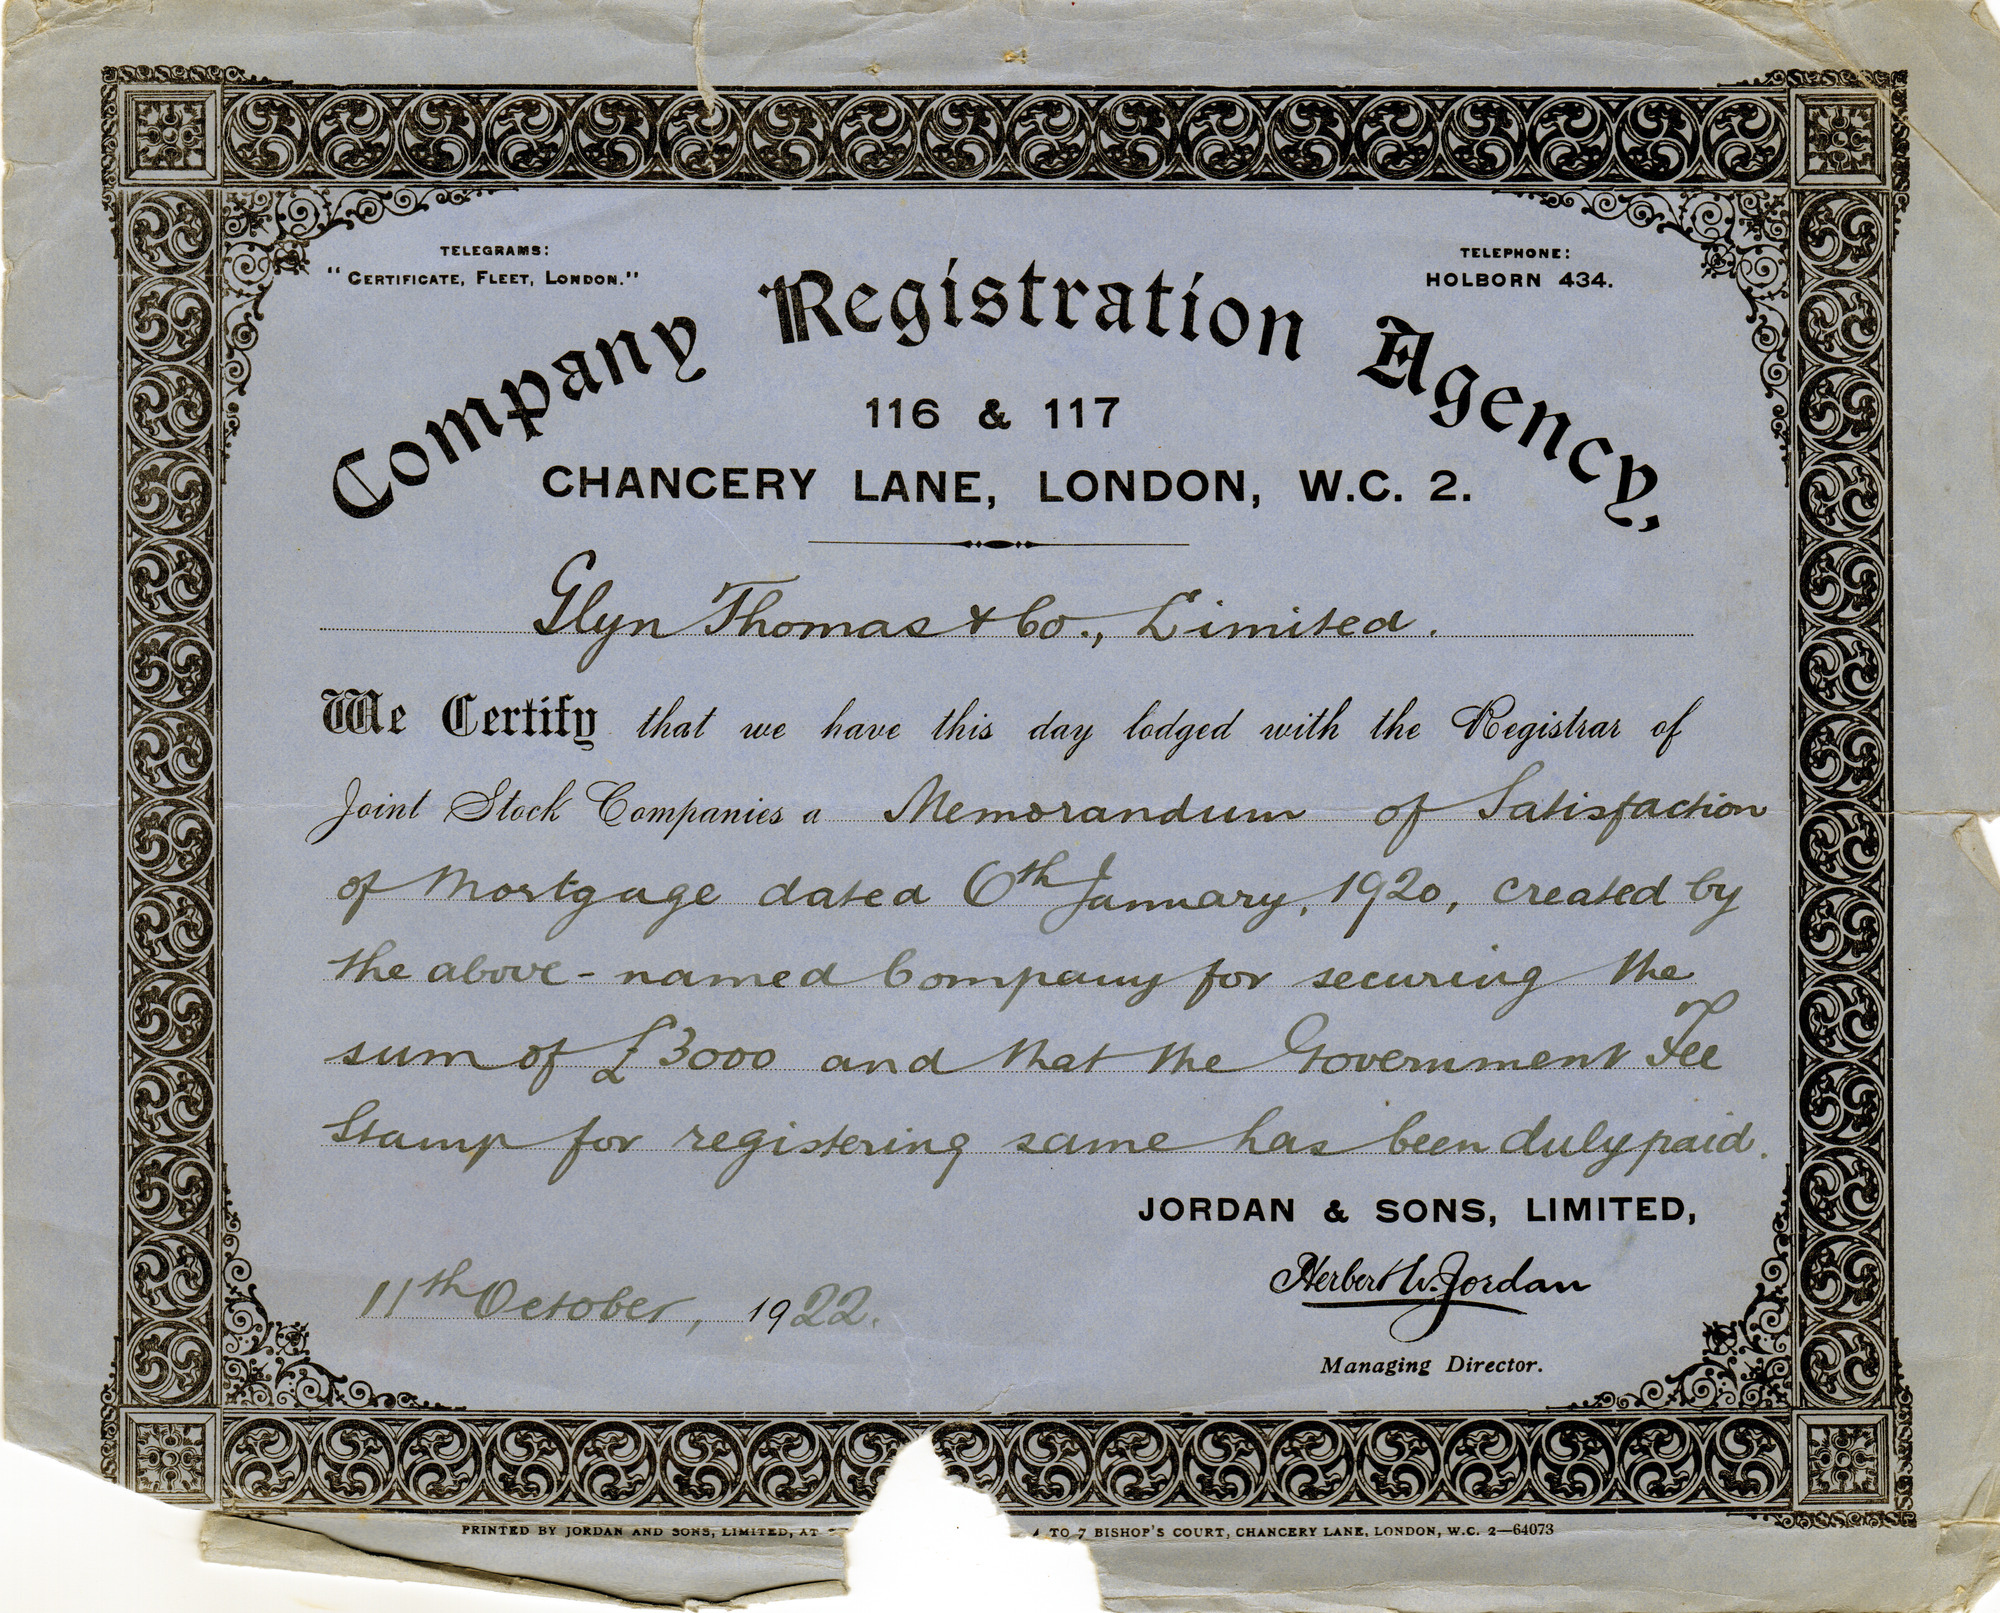 TELEGRAMS:
"CERTIFICATE, FLEET, LONDON."
TELEPHONE:
HOLBORN 434.
Company Registration Agency,
116 & 117
CHANCERY LANE, LONDON, W.C. 2.
Glyn Thomas & Co., Limited.
We Certify that we have this day lodged with the Registrar of
Joint Stock Companies a Memorandum of Satisfaction
of Mortgage dated 6th January, 1920, created by
the above-named Company for securing the
sum of £3000 and that the Government Fee
Stamp for registering same has been duly paid.
JORDAN & SONS, LIMITED,
Herbert W. Jordan
Managing Director.
11th October, 1922.
PRINTED BY JORDAN AND SONS, LIMITED, AT TO 7 BISHOP'S COURT, CHANCERY LANE, LONDON, W.C. 2—64073